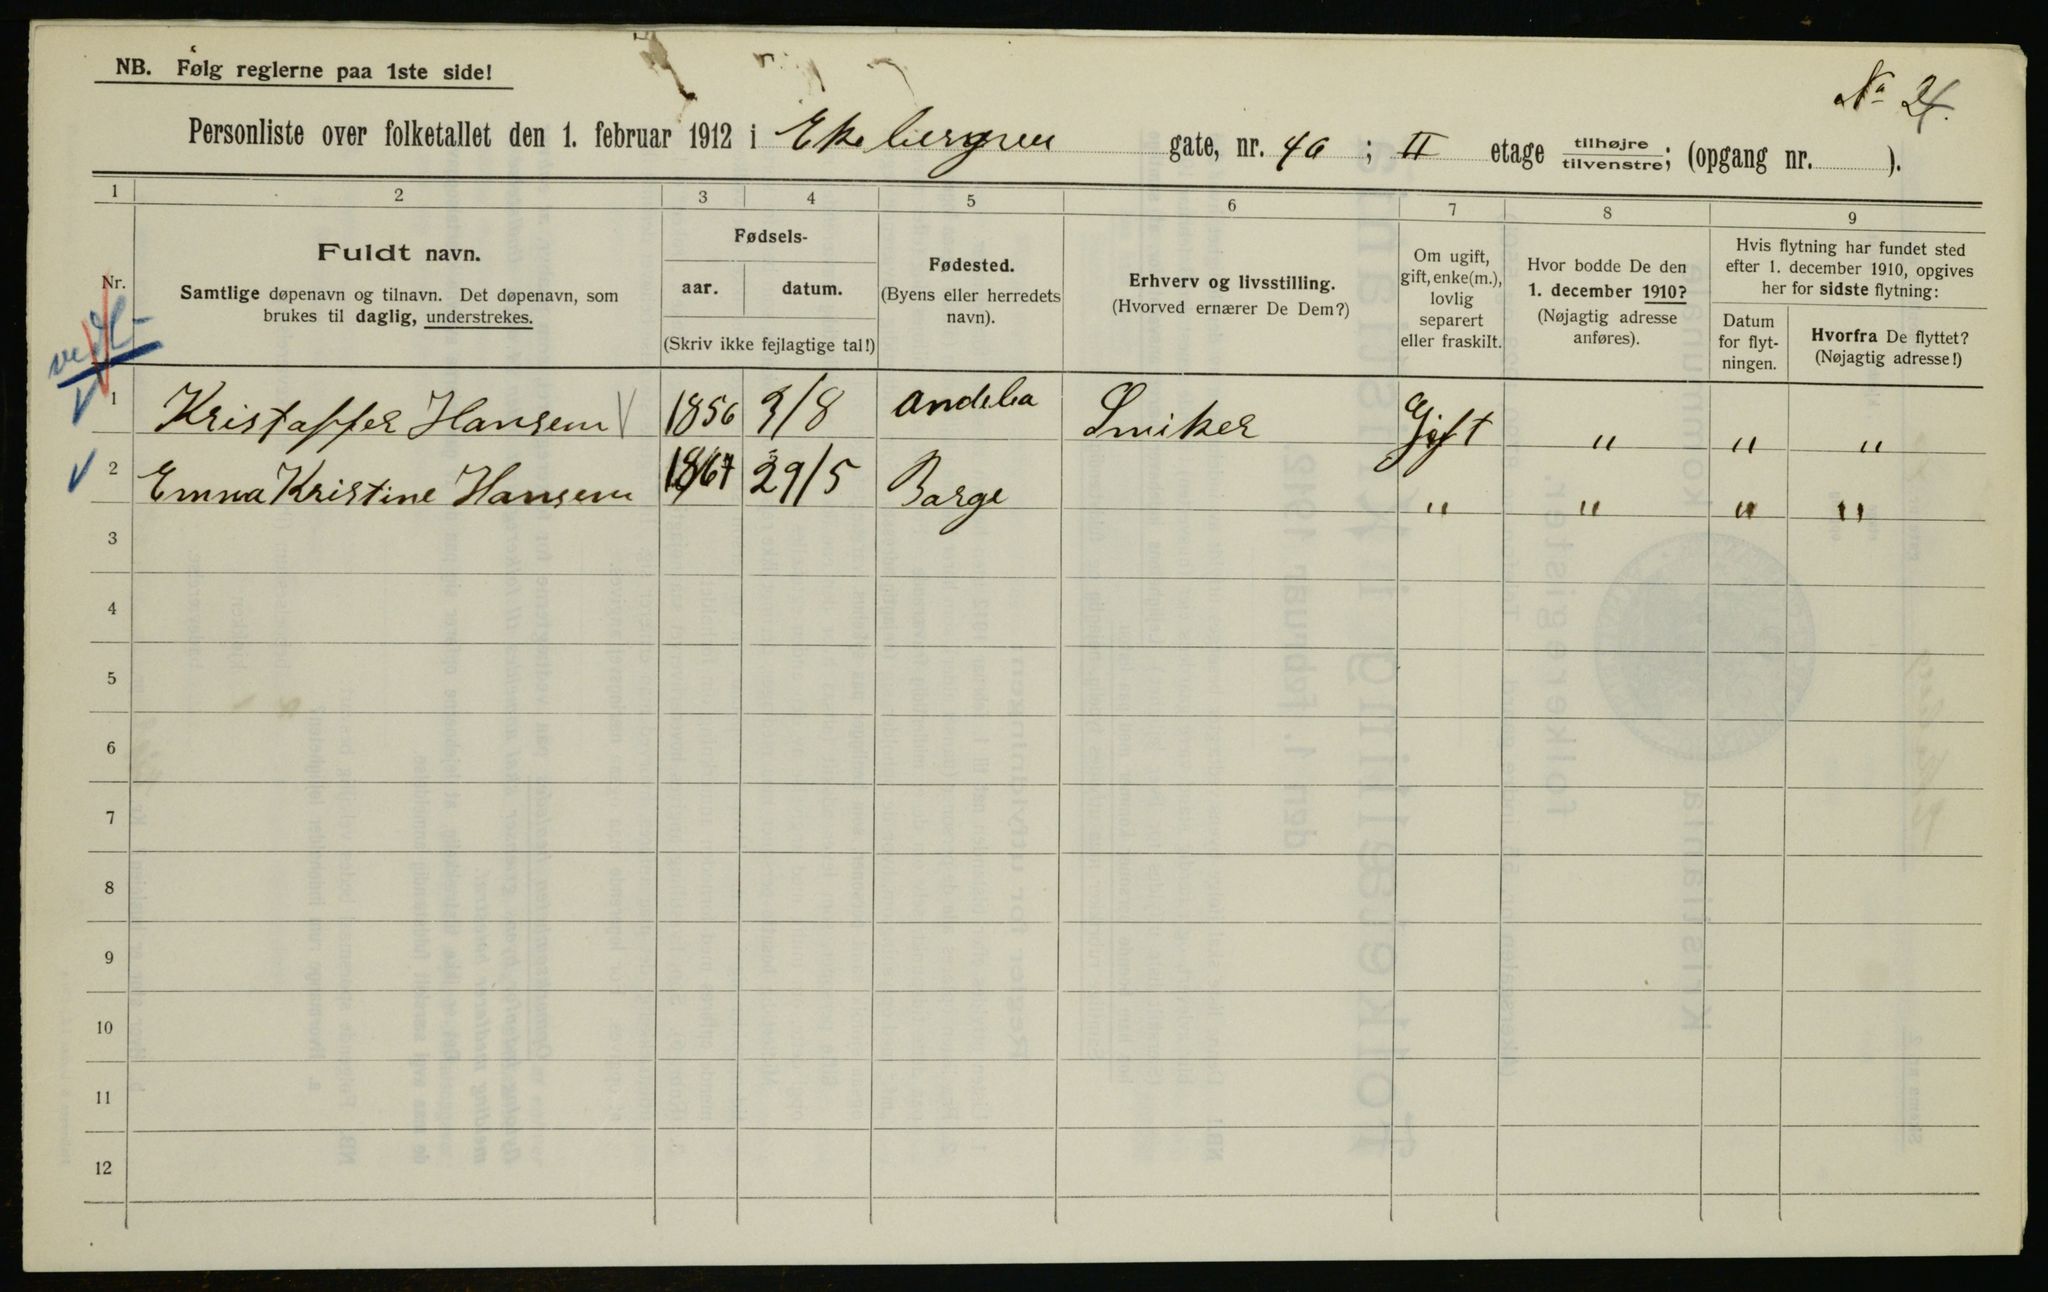 NB. Følg reglerne paa 1ste side!
No 24.
Personliste over folketallet den 1. februar 1912 i Ekebergveien gate, nr. 40 ; II etage tilhøjre / tilvenstre; (opgang nr. ).
1 2 3 4 5 6 7 8 9
Nr.
Fuldt navn.
Samtlige døpenavn og tilnavn. Det døpenavn, som
brukes til daglig, understrekes.
Fødsels-
aar. datum.
(Skriv ikke fejlagtige tal!)
Fødested.
(Byens eller herredets
navn).
Erhverv og livsstilling.
(Hvorved ernærer De Dem?)
Om ugift,
gift, enke(m.),
lovlig
separert
eller fraskilt.
Hvor bodde De den
1. december 1910?
(Nøjagtig adresse
anføres).
Hvis flytning har fundet sted
efter 1. december 1910, opgives
her for sidste flytning:
Datum
for flyt-
ningen.
Hvorfra De flyttet?
(Nøjagtig adresse!)
1 Kristaffer Hansen 1856 3/8 Andebu Smiker Gift " " "
2 Emma Kristine Hansen 1867 29/5 Borge " " " "
3
4
5
6
7
8
9
10
11
12